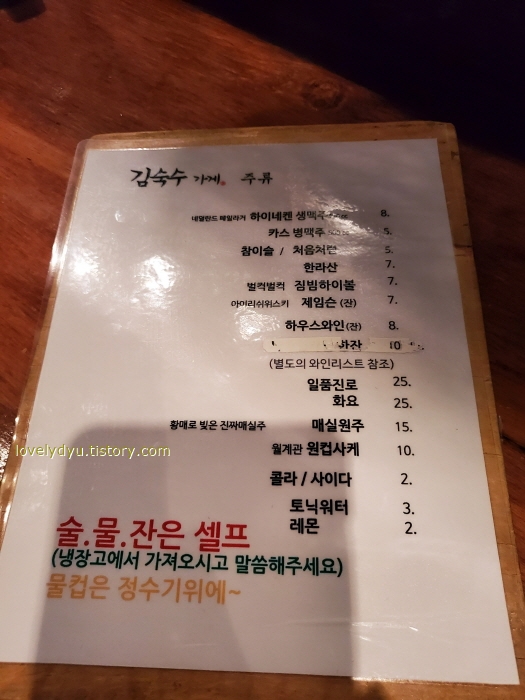 김숙수 가게. 주류
네덜란드 페일라거 하이네켄 생맥주 8.
카스 병맥주 5.
참이슬 / 처음처럼 5.
한라산 7.
벌컥벌컥 짐빔하이볼 7.
아이리쉬위스키 제임슨 (잔) 7.
하우스와인 (잔) 8.
(별도의 와인리스트 참조)
일품진로 25.
화요 25.
황매로 빚은 진짜매실주 매실원주 15.
월계관 원컵사케 10.
콜라 / 사이다 2.
토닉워터 3.
레몬 2.
술.물.잔은 셀프
(냉장고에서 가져오시고 말씀해주세요)
물컵은 정수기위에~
lovelydyu.tistory.com